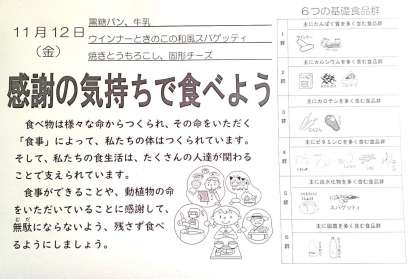 黒糖パン、牛乳
11月12日
(金)
ウインナーときのこの和風スパゲッティ
焼きとうもろこし、固形チーズ
感謝の気持ちで食べよう
食べ物は様々な命からつくられ、その命をいただく
「食事」によって、私たちの体はつくられています。
そして、私たちの食生活は、たくさんの人達が関わる
ことで支えられています。
食事ができることや、動植物の命
をいただいていることに感謝して、
無駄にならないよう、残さず食べ
るようにしましょう。
6つの基礎食品群
1群
主にたんぱく質を多く含む食品群
2群
主にカルシウムを多く含む食品群
3群
主にカロテンを多く含む食品群
4群
主にビタミンCを多く含む食品群
5群
主に炭水化物を多く含む食品群
スパゲティ
6群
主に脂質を多く含む食品群